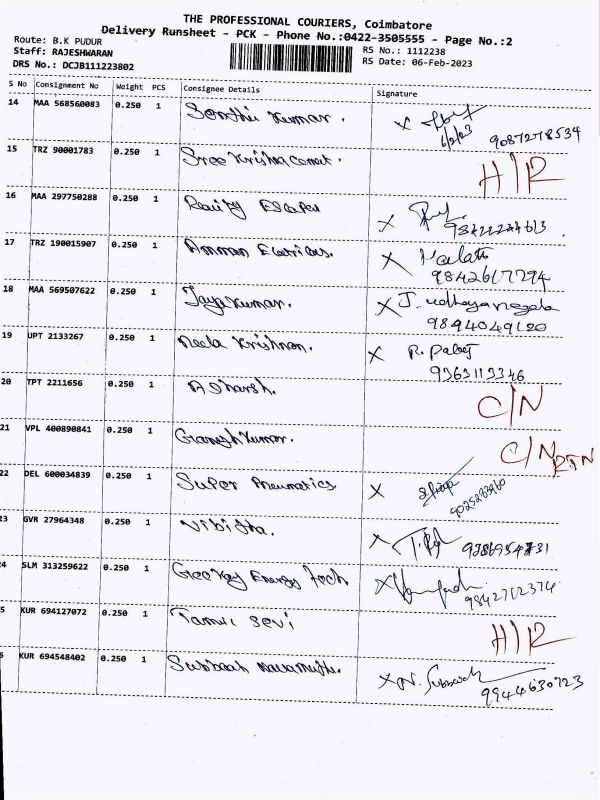 THE PROFESSIONAL COURIERS, Coimbatore
Delivery Runsheet - PCK - Phone No.:0422-3505555 - Page No.:2
Route: B.K PUDUR
RS No.: 1112238
Staff: RAJESHWARAN
RS Date: 06-Feb-2023
DRS No.: DCJB111223802
S No Consignment No Weight PCS Consignee Details Signature
14 MAA 568560083 0.250 1 Senthil Kumar. X 6/2/23 9087278534
15 TRZ 90001783 0.250 1 Sree Krishna H/R
16 MAA 297750288 0.250 1 X
17 TRZ 190015907 0.250 1 Amman X 9842617794
18 MAA 569507622 0.250 1 Jayakumar. X J. 9894049120
19 UPT 2133267 0.250 1 Neela Krishnan. X R. 9363113346
20 TPT 2211656 0.250 1 C/N
21 VPL 400890841 0.250 1 Ganesh Kumar. C/N RTN
22 DEL 600034839 0.250 1 Super Pneumatics X
23 GVR 27964348 0.250 1 X
24 SLM 313259622 0.250 1 Energy Tech X
5 KUR 694127072 0.250 1 Tamil H/R
6 KUR 694548402 0.250 1 X N. 9944630723